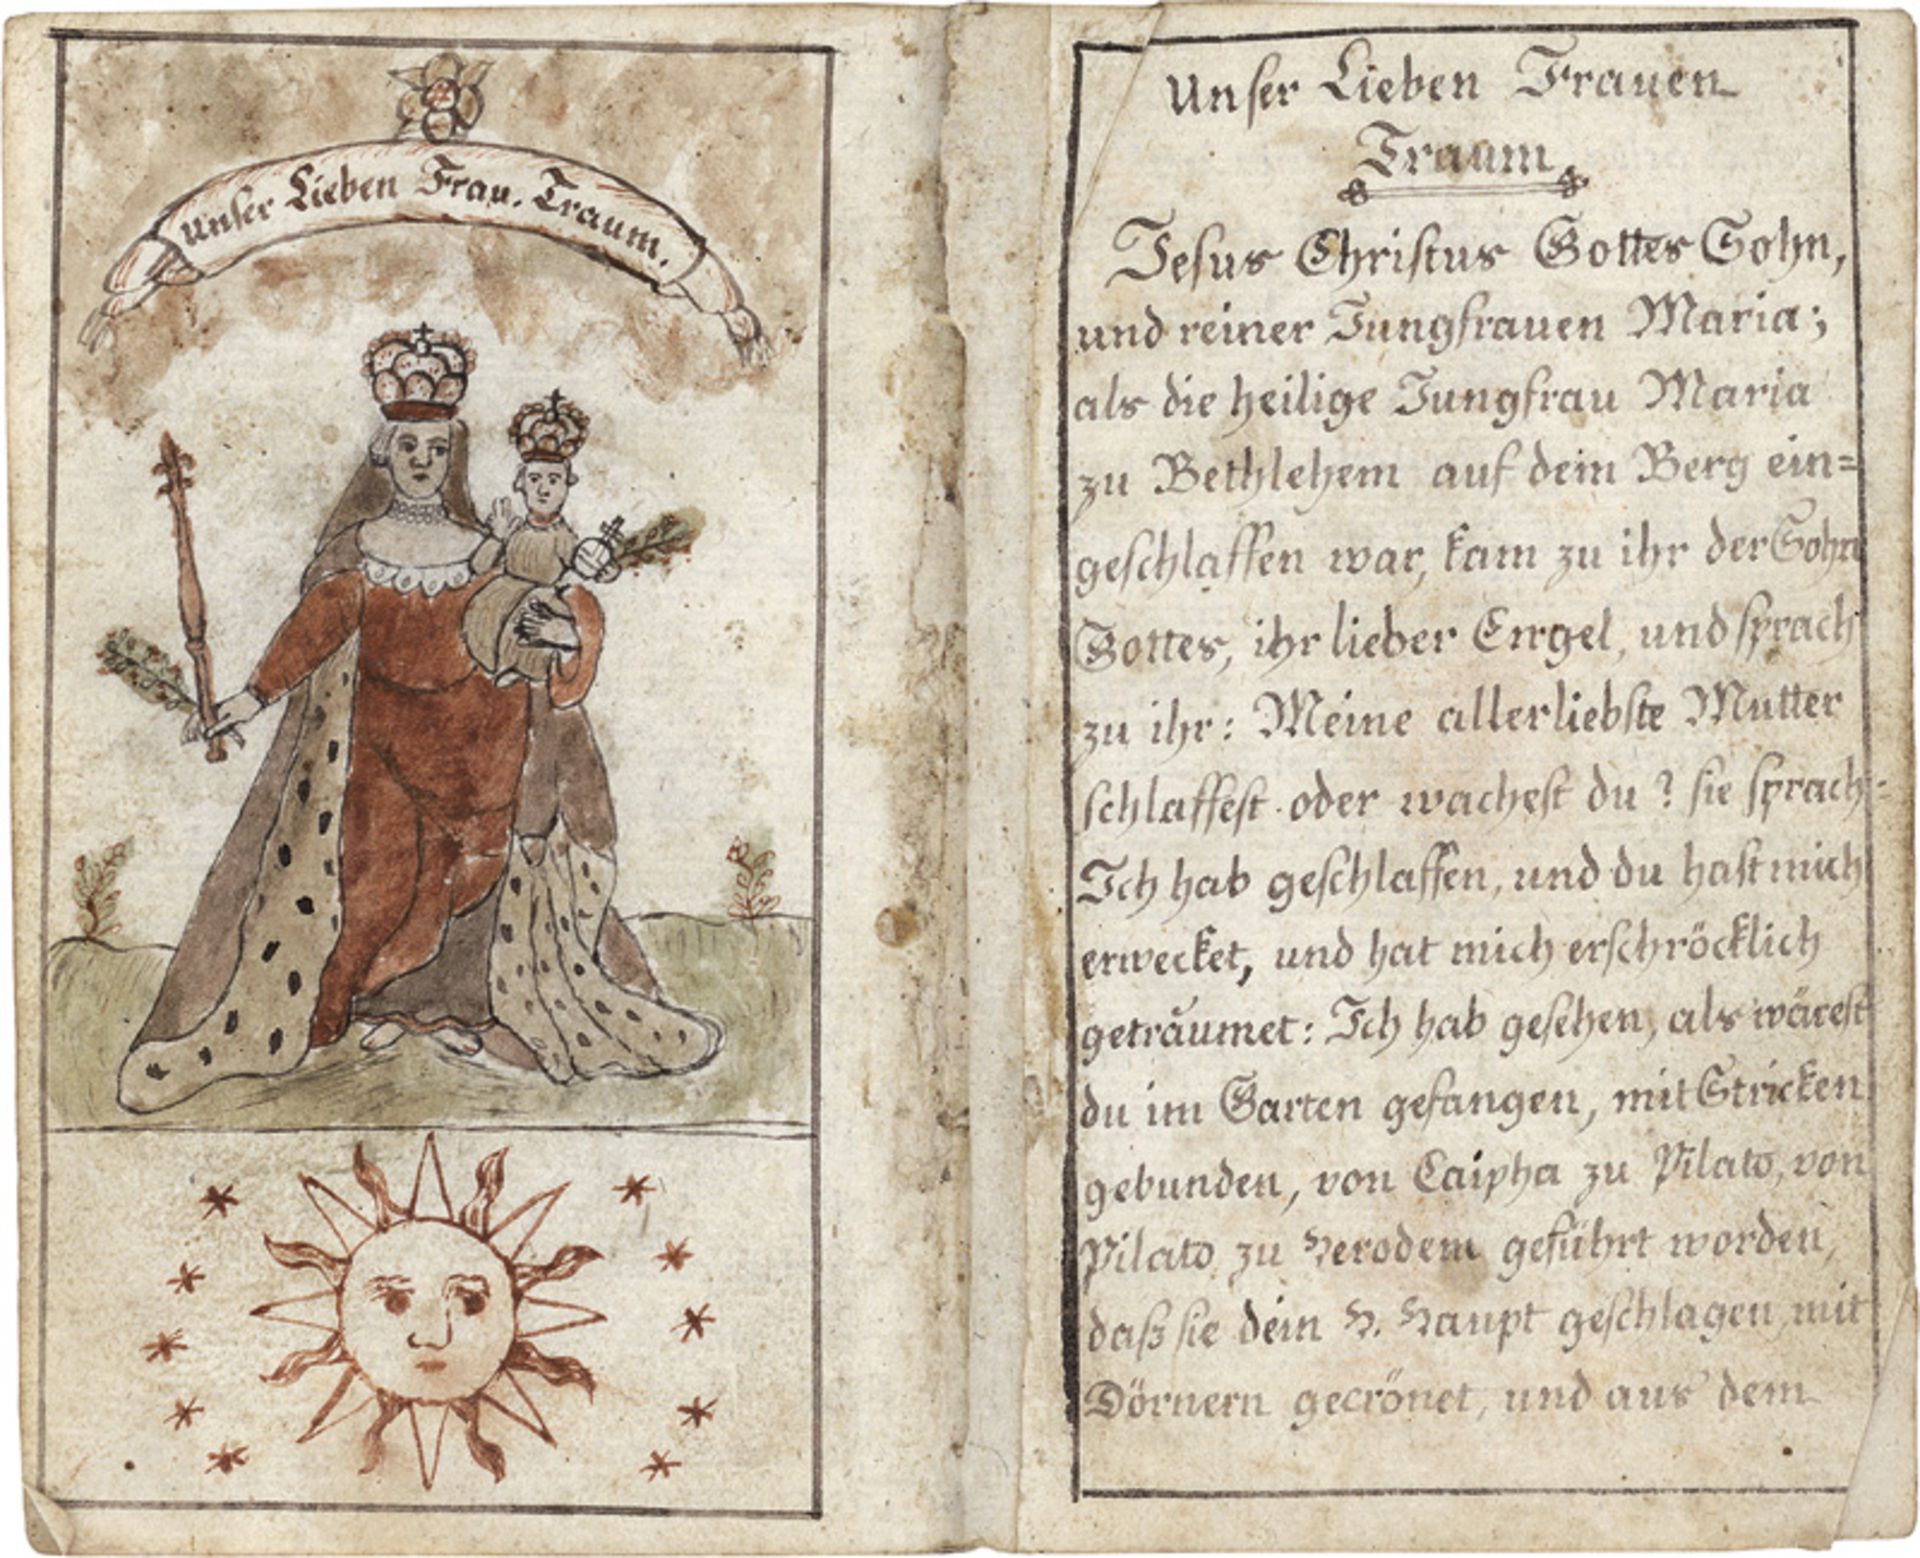 Unser Lieben Frau. Traum.
Unser Lieben Frauen
Traum
Jesus Christus Gottes Sohn,
und reiner Jungfrauen Maria;
als die heilige Jungfrau Maria
zu Bethlehem auf dem Berg ein=
geschlaffen war, kam zu ihr der Sohn
Gottes, ihr lieber Engel, und sprach
zu ihr: Meine allerliebste Mutter
schlaffest oder wachest du? sie sprach:
Ich hab geschlaffen, und du hast mich
erwecket, und hat mich erschröcklich
geträumet: Ich hab gesehen, als wärest
du im Garten gefangen, mit Stricken
gebunden, von Caipha zu Pilato, von
Pilato zu Herodem geführt worden,
daß sie dein H. Haupt geschlagen, mit
Dörnern gecrönet, und aus dem